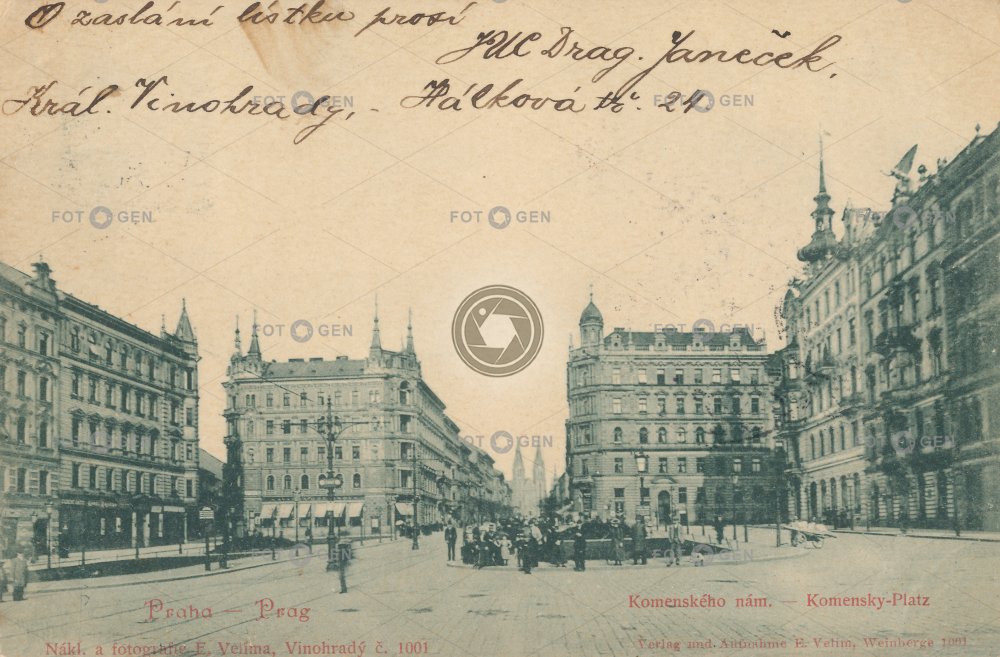 O zaslání lístku prosí
JUC Drag. Janeček,
Král. Vinohrady, - Hálková tř. 24.
FOTOGEN FOTOGEN
FOTOGEN FOTOGEN
FOTOGEN FOTOGEN
FOTOGEN FOTOGEN
Praha — Prag
Komenského nám. — Komensky-Platz
Nákl. a fotografie E. Velima, Vinohradý č. 1001
Verlag und Aufnahme E. Velim, Weinberge 1001